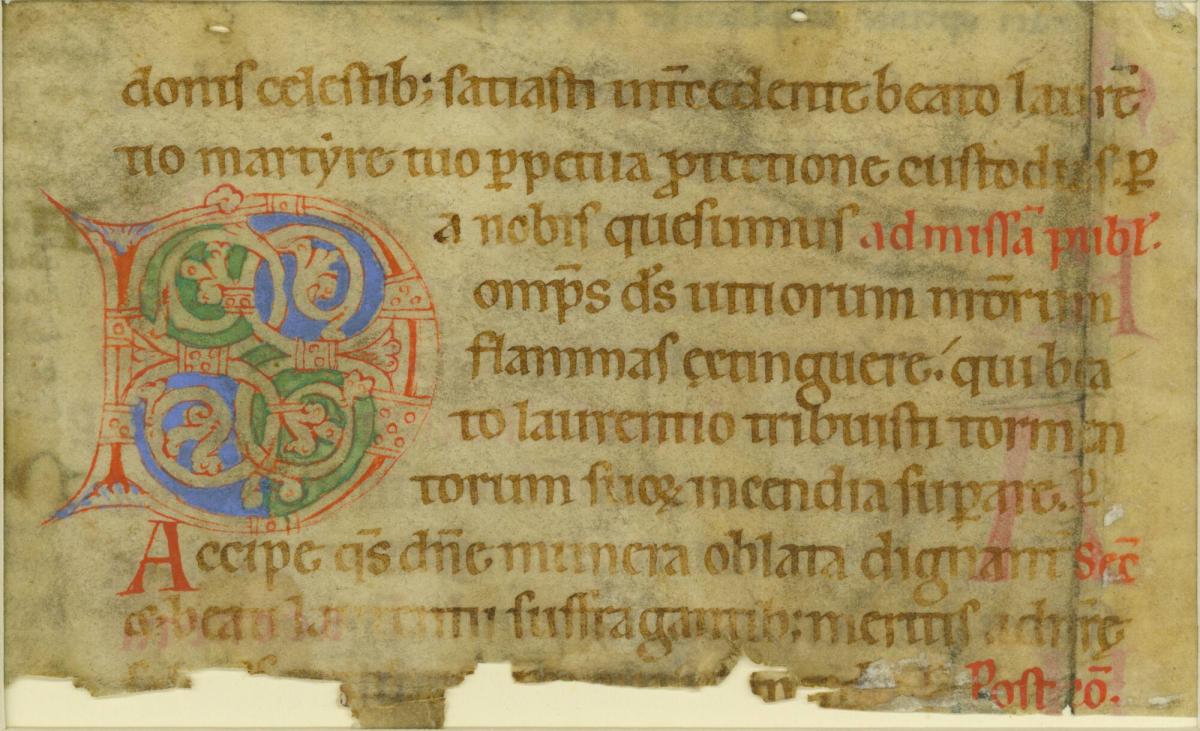 donis celestib; satiasti int̄cedente beato laurē
tio martẏre tuo ꝑpetua ꝓtectione custodias. ꝑ
Da nobis quesumus ad missā publ'.
omp̄s d̄s uitiorum nr̄orum
flammas extinguere. qui bea
to laurentio tribuisti tormen
torum suoꝝ incendia suꝑare. ꝑ
Accipe q̄s dn̄e munera oblata dignant̄ Sec̄
&beati laurentii suffragantib; meritis ad nr̄ę
Post cō.